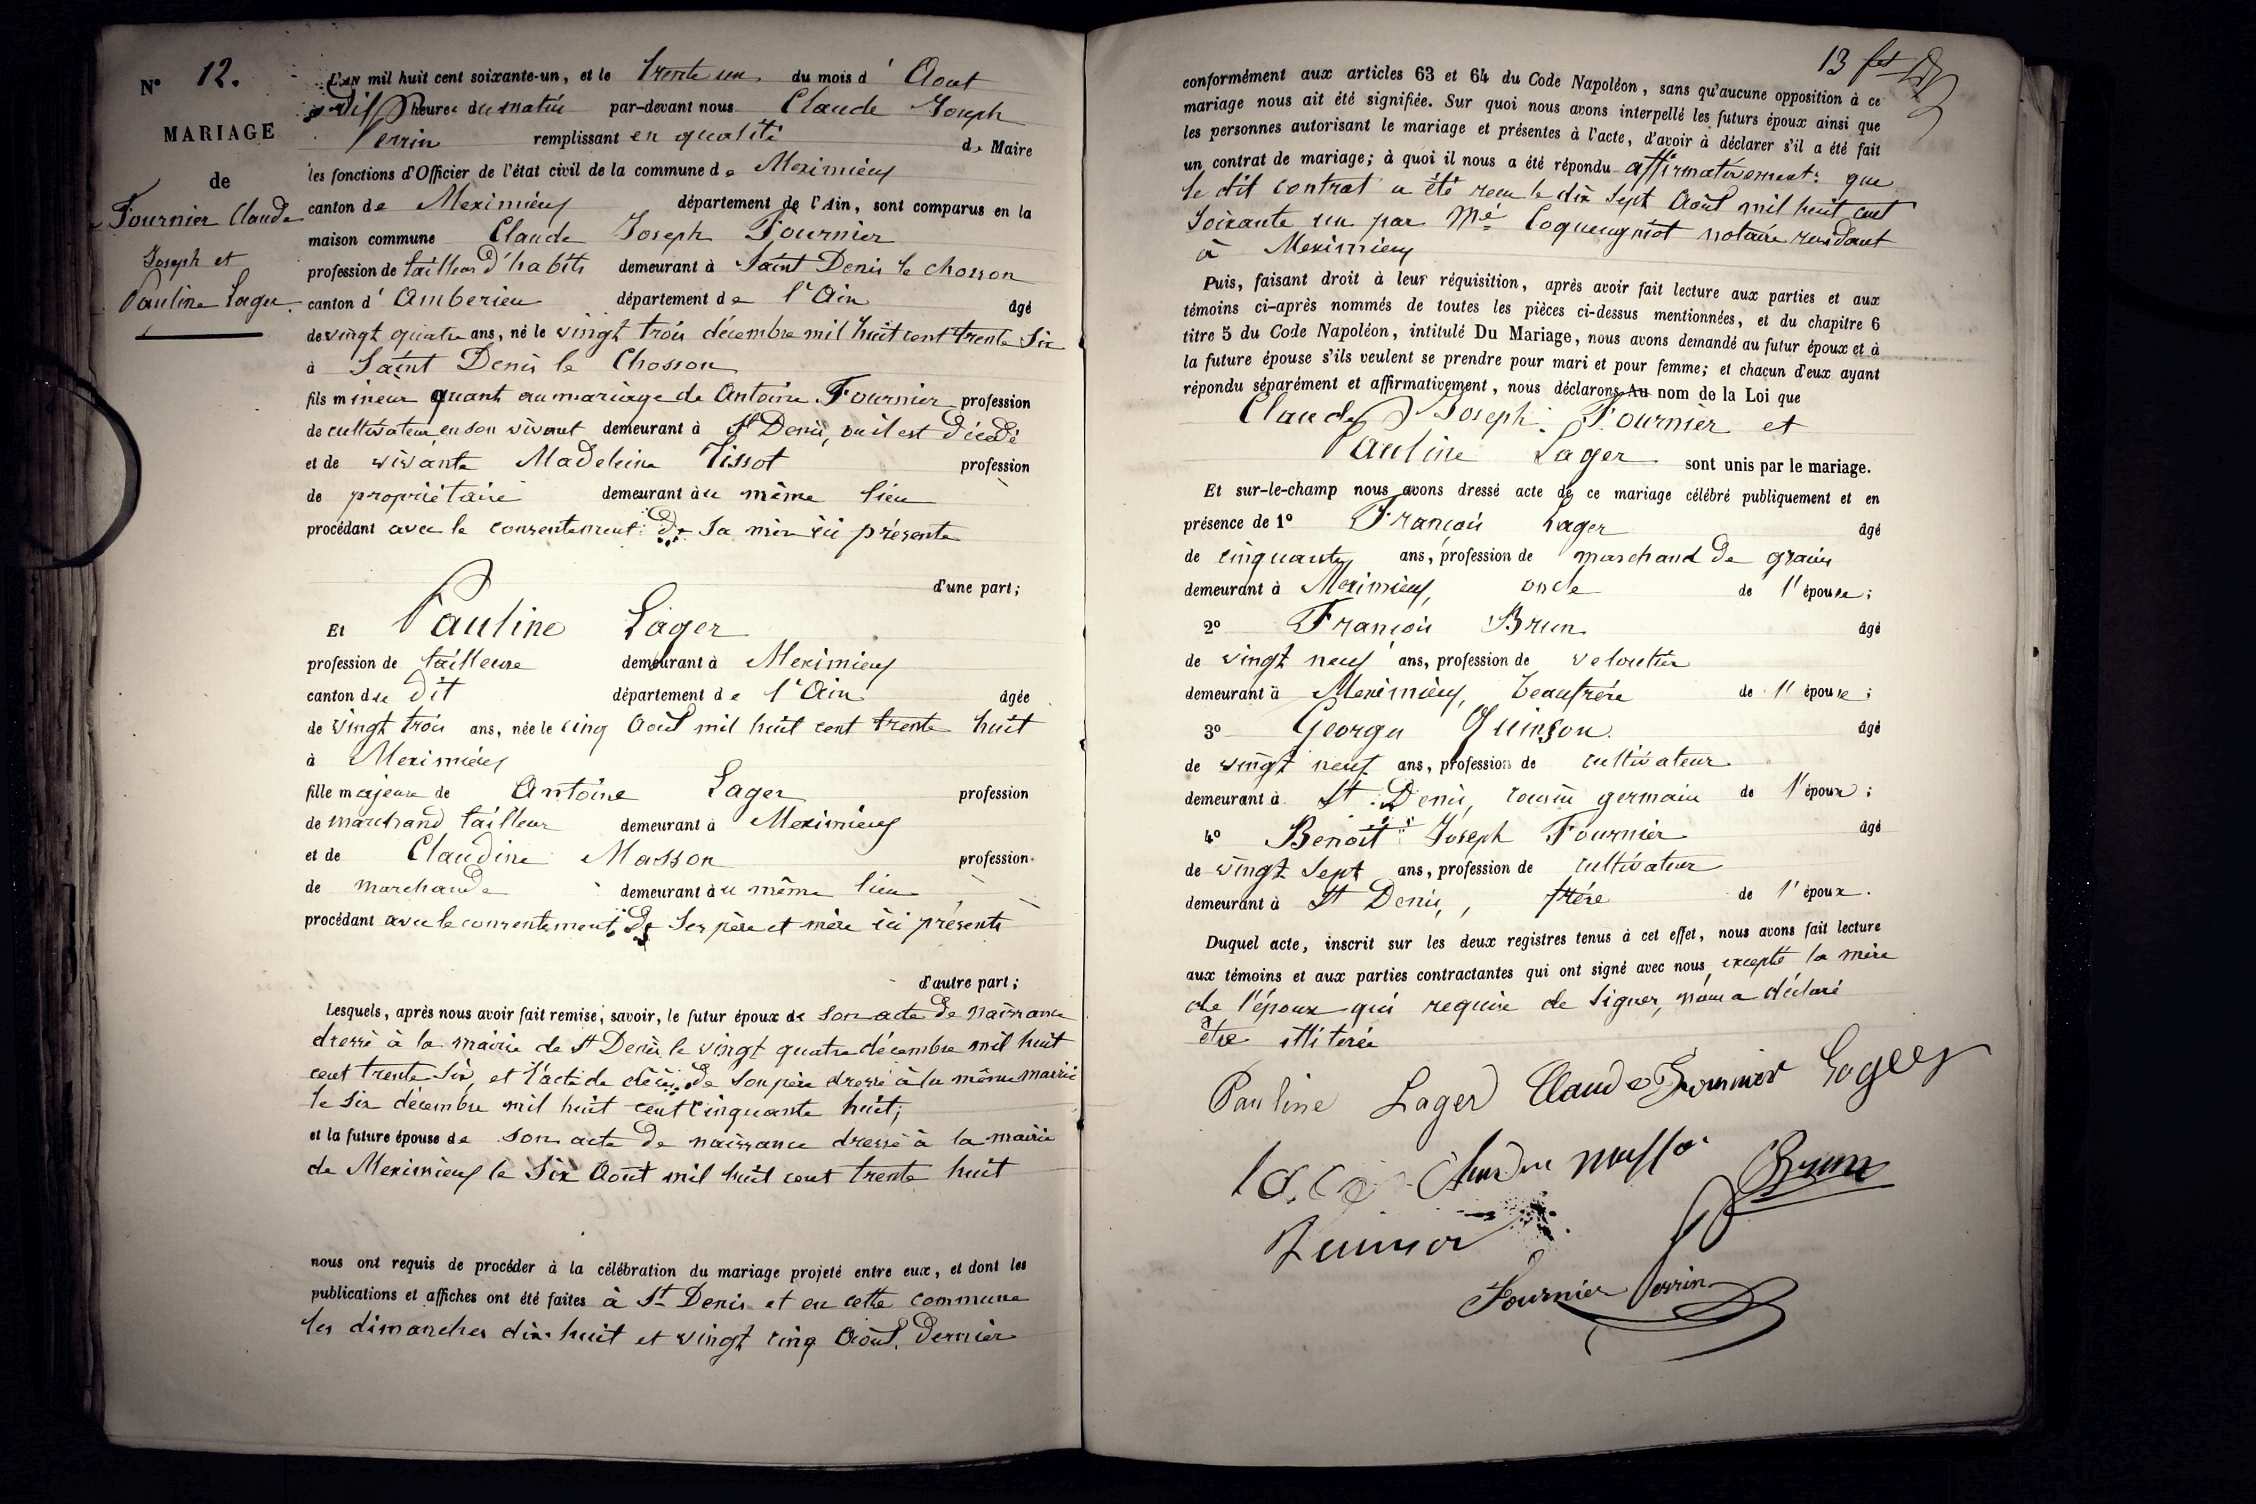 N° 12.
MARIAGE
de
Fournier Claude
Joseph et
Pauline Lager.
L'an mil huit cent soixante-un, et le trente un du mois d'Aout
à dix heures du matin par-devant nous Claude Joseph
Perrin remplissant en qualité de Maire
les fonctions d'Officier de l'état civil de la commune de Meximieux
canton de Meximieux département de l'Ain, sont comparus en la
maison commune Claude Joseph Fournier
profession de tailleur d'habits demeurant à Saint Denis le chosson
canton d'Amberieu département de l'Ain âgé
de vingt quatre ans, né le vingt trois décembre mil huit cent trente six
à Saint Denis le Chosson
fils mineur quant au mariage de Antoine Fournier profession
de cultivateur en son vivant demeurant à St Denis, ou il est décédé
et de vivante Madeleine Tissot profession
de propriétaire demeurant au même lieu
procédant avec le consentement de sa mère ici présente
d'une part;
Et Pauline Lager
profession de tailleuse demeurant à Meximieux
canton du dit département de l'Ain âgée
de vingt trois ans, née le cinq Août mil huit cent trente huit
à Meximieux
fille majeure de Antoine Lager profession
de marchand tailleur demeurant à Meximieux
et de Claudine Masson profession
de marchande demeurant au même lieu
procédant avec le consentement de ses père et mère ici présents
d'autre part;
Lesquels, après nous avoir fait remise, savoir, le futur époux de son acte de naissance
dressé à la mairie de St Denis le vingt quatre décembre mil huit
cent trente six, et l'acte de décès de son père dressé à la même mairie
le six décembre mil huit cent cinquante huit;
et la future épouse de son acte de naissance dressé à la mairie
de Meximieux le six Août mil huit cent trente huit
nous ont requis de procéder à la célébration du mariage projeté entre eux, et dont les
publications et affiches ont été faites à St Denis et en cette commune
les dimanches dix-huit et vingt cinq Août dernier
13
conformément aux articles 63 et 64 du Code Napoléon, sans qu'aucune opposition à ce
mariage nous ait été signifiée. Sur quoi nous avons interpellé les futurs époux ainsi que
les personnes autorisant le mariage et présentes à l'acte, d'avoir à déclarer s'il a été fait
un contrat de mariage; à quoi il nous a été répondu affirmativement: que
le dit contrat a été recu le dix sept Août mil huit cent
soixante un par Me Coqueugniot notaire résidant
à Meximieux
Puis, faisant droit à leur réquisition, après avoir fait lecture aux parties et aux
témoins ci-après nommés de toutes les pièces ci-dessus mentionnées, et du chapitre 6
titre 5 du Code Napoléon, intitulé Du Mariage, nous avons demandé au futur époux et à
la future épouse s'ils veulent se prendre pour mari et pour femme; et chacun d'eux ayant
répondu séparément et affirmativement, nous déclarons Au nom de la Loi que
Claude Joseph Fournier et
Pauline Lager sont unis par le mariage.
Et sur-le-champ nous avons dressé acte de ce mariage célébré publiquement et en
présence de 1° François Lager âgé
de cinquante ans, profession de marchand de grains
demeurant à Meximieux, oncle de l'épouse;
2° François Brun âgé
de vingt neuf ans, profession de veloutier
demeurant à Meximieux, beaufrére de l'épouse;
3° George Quinson. âgé
de vingt neuf ans, profession de cultivateur
demeurant à St Denis, cousin germain de l'époux;
4° Benoit Joseph Fournier âgé
de vingt sept ans, profession de cultivateur
demeurant à St Denis, frére de l'époux.
Duquel acte, inscrit sur les deux registres tenus à cet effet, nous avons fait lecture
aux témoins et aux parties contractantes qui ont signé avec nous, excepté la mère
de l'époux qui requise de signer, nous a déclaré
être illiterée
Pauline Lager Claude Fournier Lager
Brun
Fournier Perrin